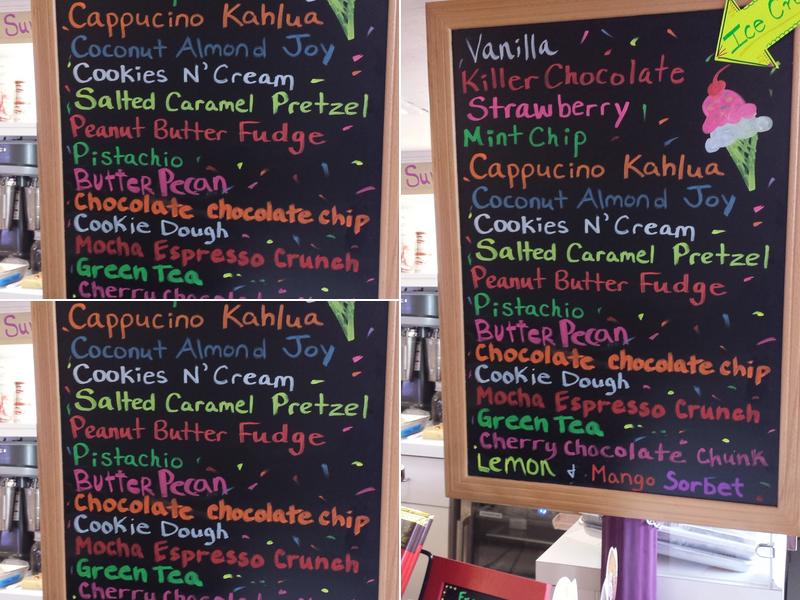 Su
Cappucino Kahlua
Coconut Almond Joy
Cookies N' Cream
Salted Caramel Pretzel
Peanut Butter Fudge
Pistachio
Butter Pecan
Chocolate chocolate chip
Cookie Dough
Mocha Espresso Crunch
Green Tea
Cherry Chocolate
Su
Cappucino Kahlua
Coconut Almond Joy
Cookies N' Cream
Salted Caramel Pretzel
Peanut Butter Fudge
Pistachio
Butter Pecan
Chocolate chocolate chip
Cookie Dough
Mocha Espresso Crunch
Green Tea
Ice
Vanilla
Killer Chocolate
Strawberry
Mint Chip
Cappucino Kahlua
Su
Coconut Almond Joy
Cookies N' Cream
Salted Caramel Pretzel
Peanut Butter Fudge
Pistachio
Butter Pecan
Chocolate chocolate chip
Cookie Dough
Mocha Espresso Crunch
Green Tea
Cherry Chocolate Chunk
Lemon & Mango Sorbet